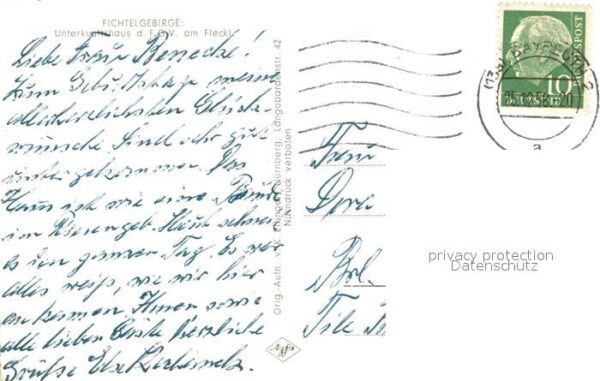 FICHTELGEBIRGE:
Unterkunftshaus d. F.G.V. am Fleckl
Liebe Frau Benecke!
Zum Geburtstage meine
allerherzlichsten Glück-
wünsche. Sind sehr gut
untergekommen. Das
Haus ist wie eine Baude
im Riesengeb. Heute schneit
es den ganzen Tag. Es war
alles weiß, wie wir hier
an kamen. Ihnen sowie
alle lieben Gäste herzliche
Grüße
Orig.-Aufn. v. Nürnberg, Langobardenstr. 42
Nachdruck verboten
BAYREUTH 2
20
a
10
DEUTSCHE BUNDESPOST
Frau
Dora
Bln.
privacy protection
Datenschutz